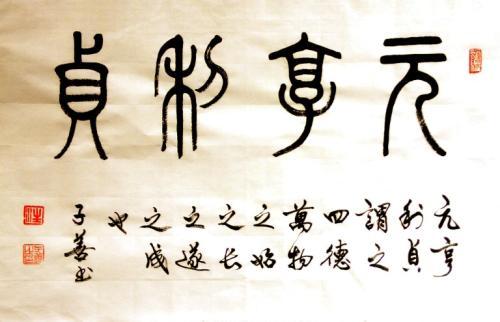 元亨利貞
元亨
利貞
謂之
四德
萬物
之始
之長
之遂
之成
也
子善书